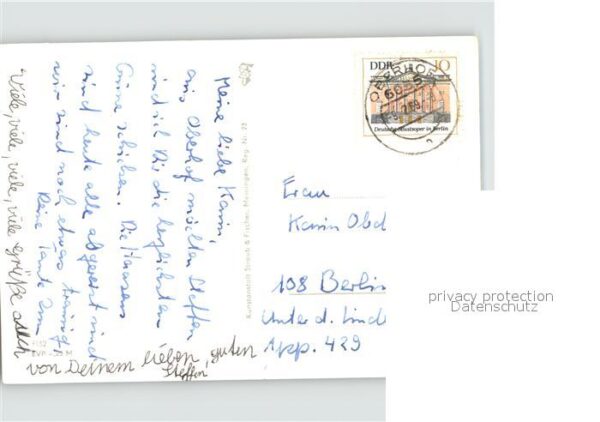 Meine liebe Karin,
aus Oberhof möchten Steffen
und ich Dir die herzlichsten
Grüße schicken. Die
sind heute alle abgereist und
wir sind noch etwas traurig.
Deine Tante
Viele, viele, viele, viele grüße auch
von Deinem lieben, guten
Steffen
Kunstanstalt Straub & Fischer, Meiningen, Reg.-Nr. 72
EVP
DDR 10
Deutsche Staatsoper in Berlin
OBERHOF
6055
Frau
Karin
108 Berlin
Unter d. Lind
App. 429
privacy protection
Datenschutz